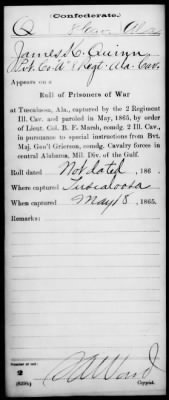 (Confederate.)
Q 8 Cav. Ala.
James K. Quinn
Pvt. Co. 8 Regt. Ala. Cav.
Appears on a
Roll of Prisoners of War
at Tuscaloosa, Ala., captured by the 2 Regiment
Ill. Cav. and paroled in May, 1865, by order
of Lieut. Col. B. F. Marsh, comdg. 2 Ill. Cav.,
in pursuance to special instructions from Bvt.
Maj. Gen'l Grierson, comdg. Cavalry forces in
central Alabama, Mil. Div. of the Gulf.
Roll dated Not dated, 186 .
Where captured Tuscaloosa
When captured May 18, 1865.
Remarks:
Number of roll:
2
Ward
Copyist.